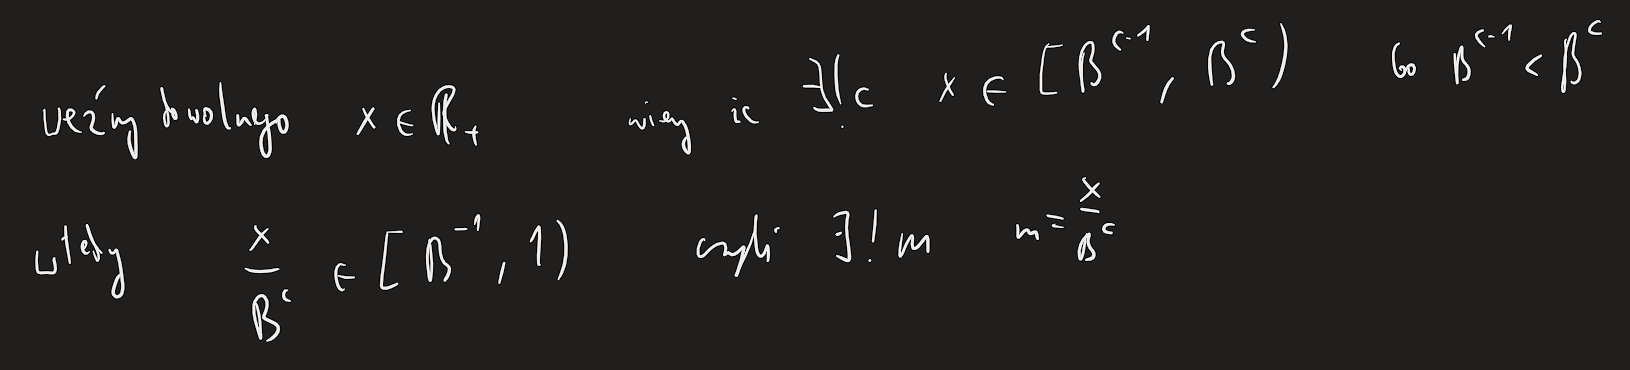 weźmy dowolnego x ∈ ℝ₊ wiemy że ∃!c x ∈ [B^{c-1}, B^c) bo B^{c-1} < B^c
wtedy x/B^c ∈ [B^{-1}, 1) czyli ∃! m m = x/B^c